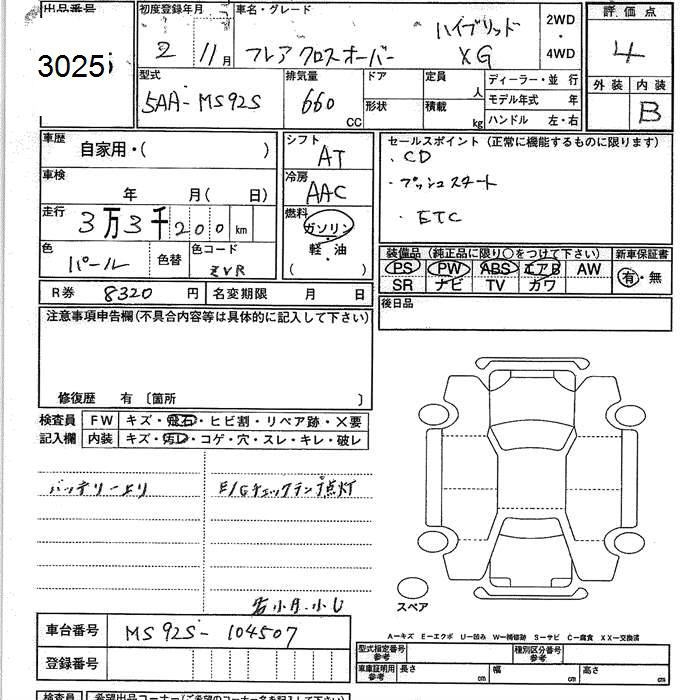 出品番号 初度登録年月 車名・グレード 2WD・4WD 評価点
3025 2 11月 フレア クロスオーバー ハイブリッド XG 4
型式 排気量 ドア 定員 人 ディーラー・並行 外装 内装
5AA-MS92S 660 CC 形状 積載 kg モデル年式 年 B
ハンドル 左・右
車歴 自家用・( ) シフト AT セールスポイント (正常に機能するものに限ります)
・CD
車検 年 月( 日) 冷房 AAC ・プッシュスタート
走行 3万3千200km 燃料 ガソリン・軽・油 ( ) ・ETC
色 パール 色替 色コード ZVR
装備品 (純正品に限り○をつけて下さい) 新車保証書
PS PW ABS エアB AW 有・無
SR ナビ TV カワ
R券 8320円 名変期限 月 日 後日品
注意事項申告欄(不具合内容等は具体的に記入して下さい)
修復歴 有 〔箇所 〕
検査員記入欄 FW キズ・飛石・ヒビ割・リペア跡・×要
内装 キズ・汚レ・コゲ・穴・スレ・キレ・破レ
バッテリー上り E/Gチェックランプ点灯
スペア
車台番号 MS92S-104507
A―キズ E―エクボ U―凹み W―補修跡 S―サビ C―腐食 XX―交換済
登録番号 型式指定番号 参考 種別区分番号 参考
車庫証明用 参考 長さ cm 幅 cm 高さ cm
検査員 希望出品コーナー(ご希望のコーナー名を記入して下さい)